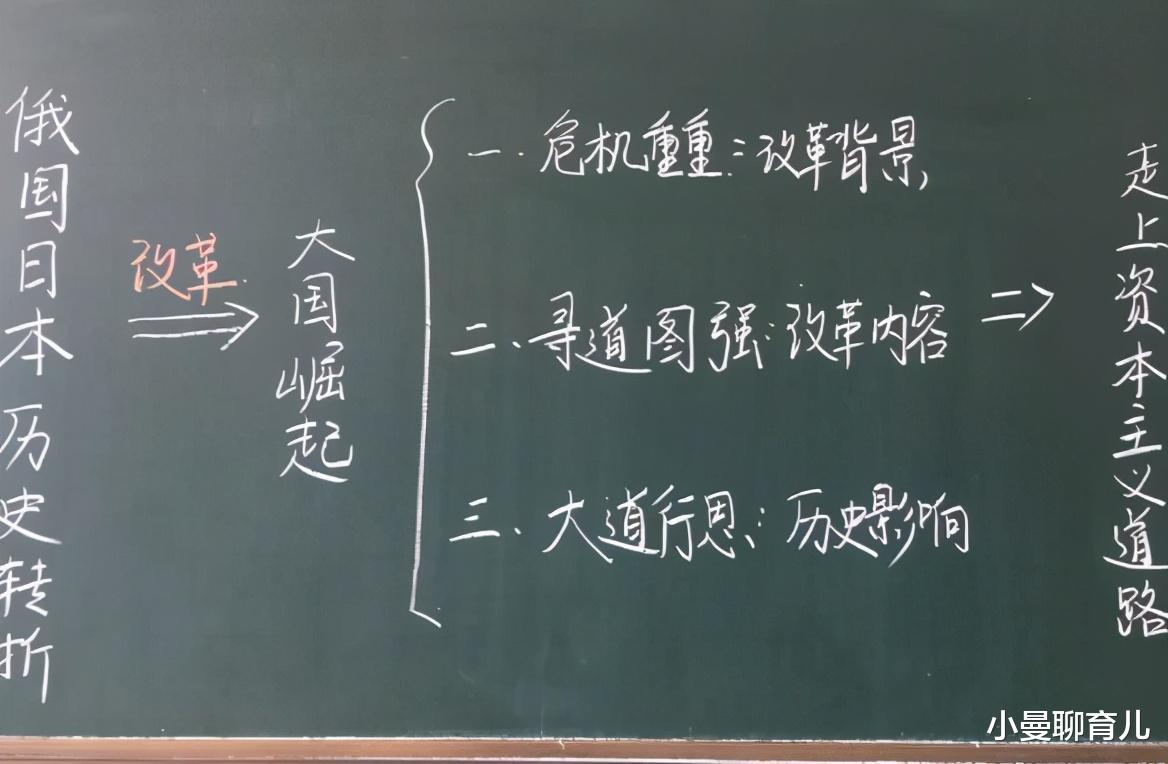 俄国日本历史转折
改革
大国崛起
一.危机重重:改革背景
二、寻道图强:改革内容
三、大道行思:历史影响
走上资本主义道路
小曼聊育儿